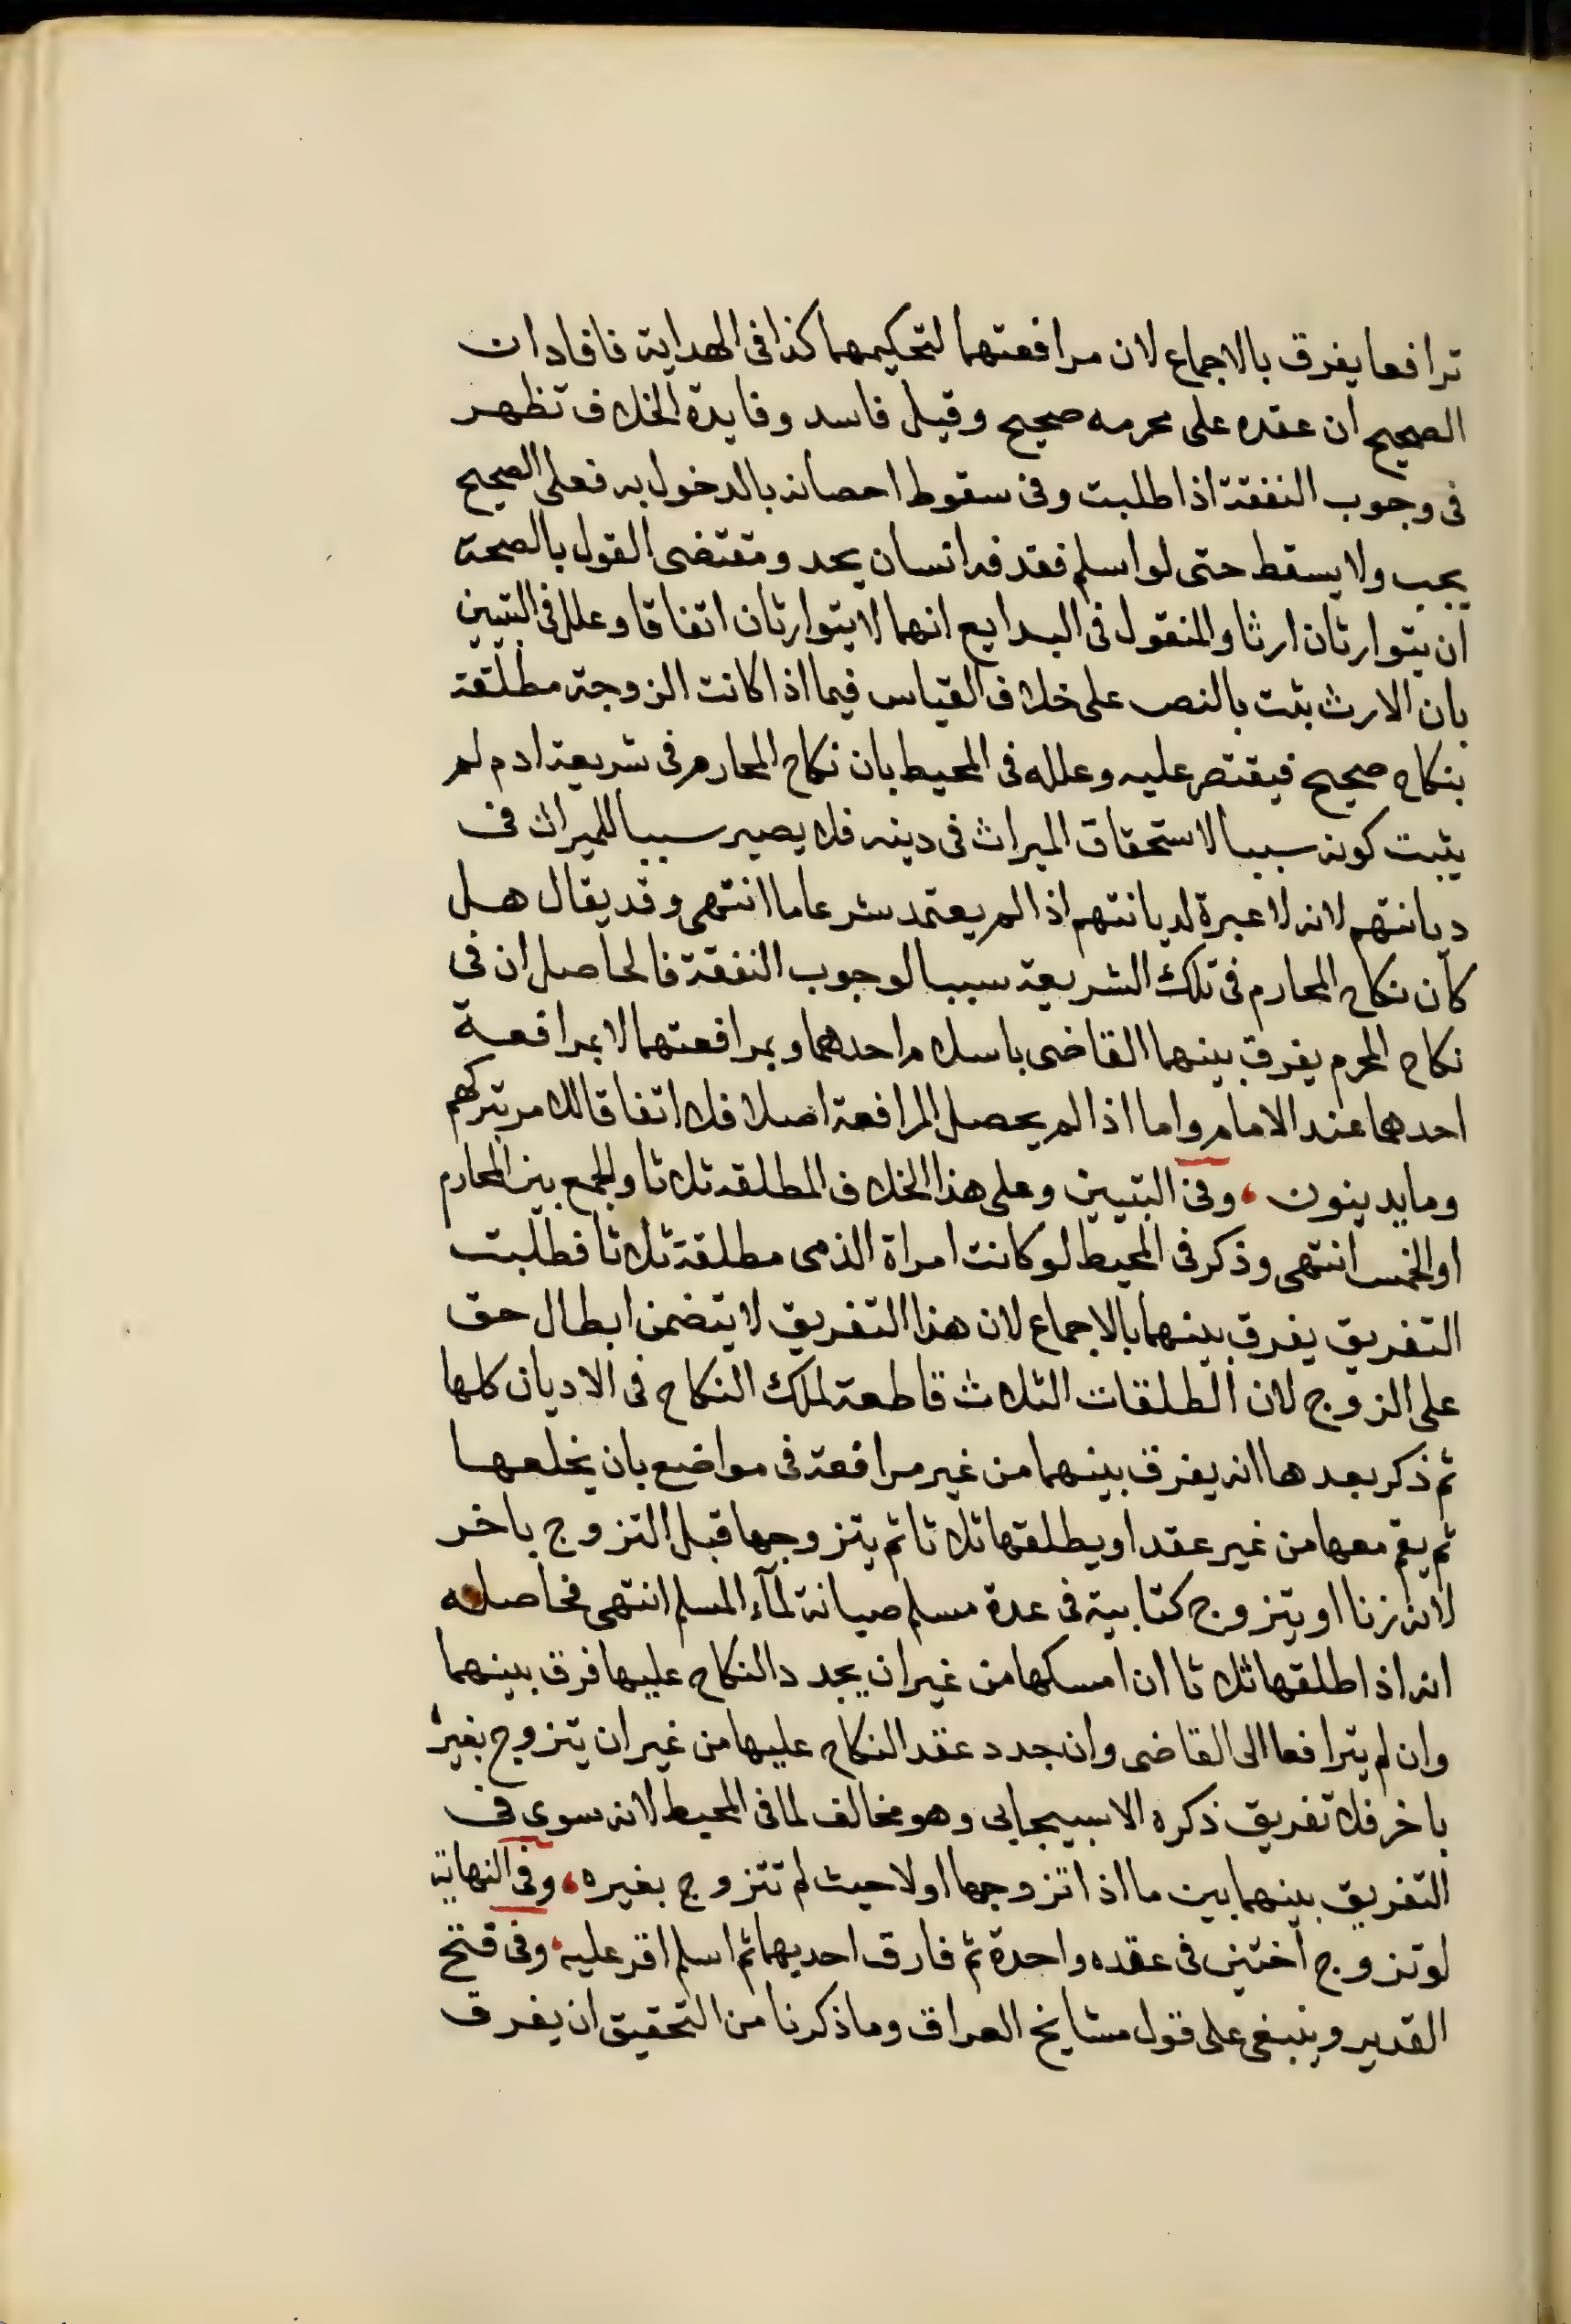 ترافعا يفرق بالاجماع لان مرافعتهما لتحكيمهما كذا فى الهداية فافاد ان
الصحيح ان عقده على محرمه صحيح وقيل فاسد وفايدة الخلاف تظهر
فى وجوب النفقة اذا طلبت وفى سقوط احصانه بالدخول به فعلى الصحيح
يجب ولا يسقط حتى لو اسلم فقذفه انسان يحد ومقتضى القول بالصحة
ان يتوارثان ارثا والمنقول فى البدايع انهما لا يتوارثان اتفاقا وعلل فى التبيين
بان الارث بثت بالنص على خلاف القياس فيما اذا كانت الزوجة مطلقة
بنكاح صحيح فيقتصر عليه وعلله فى المحيط بان نكاح المحارم فى شريعة ادم لم
يثبت كونه سببا لاستحقاق الميراث فى دينه فلا يصير سببا للميراث فى
ديانتهم لانه لا عبرة لديانتهم اذا لم يعتمد شرعا ما انتهى وقد يقال هل
كان نكاح المحارم فى تلك الشريعة سببا لوجوب النفقة فالحاصل ان فى
نكاح المحرم يفرق بينهما القاضى باسلام احدهما وبمرافعتهما لا بمرافعة
احدهما عند الامام واما اذا لم يحصل المرافعة اصلا فلا اتفاقا للامر بتركهم
وما يدينون ، وفى التبيين وعلى هذا الخلاف المطلقة ثلاثا والجمع بين المحارم
او الخمس انتهى وذكر فى المحيط لو كانت امراة الذمى مطلقة ثلاثا فطلبت
التفريق يفرق بينهما بالاجماع لان هذا التفريق لا يتضمن ابطال حق
على الزوج لان الطلقات الثلاث قاطعة لملك النكاح فى الاديان كلها
ثم ذكر بعدها انه يفرق بينهما من غير مرافعة فى مواضع بان يخلعها
ثم يقم معها من غير عقد او يطلقها ثلاثا ثم يتزوجها قبل التزوج باخر
لانه زنا او يتزوج كتابية فى عدة مسلم صيانة لمآء المسلم انتهى فحاصله
انه اذا طلقها ثلاثا ان امسكها من غير ان يجدد النكاح عليها فرق بينهما
وان لم يترافعا الى القاضى وان جدد عقد النكاح عليها من غير ان يتزوج بغيره
باخر فلا تفريق ذكره الاسبيجابى وهو مخالف لما فى المحيط لانه سوى فى
التفريق بينهما بين ما اذا تزوجها اولا حيث لم تتزوج بغيره ، وفى النهاية
لو تزوج اختين فى عقده واحدة ثم فارق احديهما ثم اسلم اقر عليه ، وفى فتح
القدير وينبغى على قول مشايخ العراق وما ذكرنا من التحقيق ان يفرق